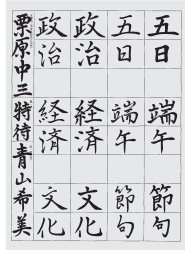 五日 端午 節句
五日 端午 節句
政治 経済 文化
政治 経済 文化
栗原中三特待青山希美